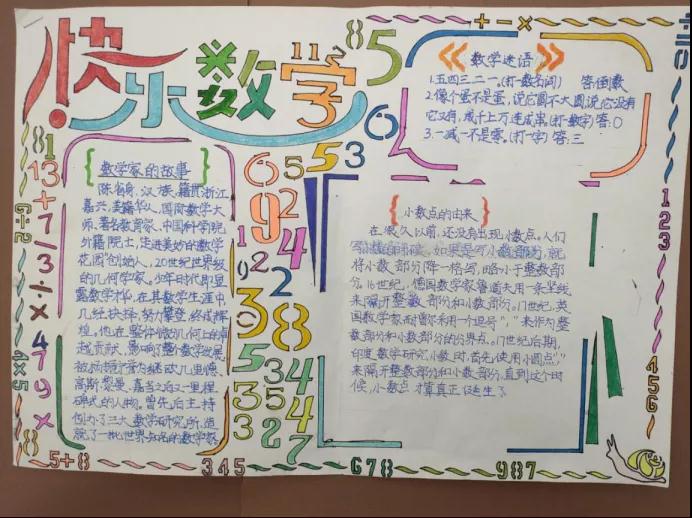 快乐数学
数学迷语
1.五四三二一。(打一数名词) 答:倒数
2.像个蛋不是蛋,说它圆不大圆,说它没有
它又有,成千上万连成串(打一数字)答:0
3.一减一不是零。(打一字)答:三
数学家的故事
陈省身,汉族,籍贯浙江
嘉兴,美籍华人,国际数学大
师、著名教育家、中国科学院
外籍院士,走进美妙的数学
花园创始人,20世纪世界级
的几何学家。少年时代即显
露数学才华,在其数学生涯中,
几经抉择,努力攀登,终成辉
煌。他在整体微分几何上的卓
越贡献,影响了整个数学发展,
被杨振宁誉为继欧几里德、
高斯、黎曼、嘉当之后又一里程
碑式的人物。曾先后主持
创办了三大数学研究所,造
就了一批世界知名的数学家。
小数点的由来
在很久以前,还没有出现小数点。人们
写小数的时候,如果是写小数部分,就
将小数部分降一格写,略小于整数部
分。16世纪,德国数学家鲁道夫用一条竖线
来隔开整数部分和小数部分。17世纪,英
国数学家耐普尔采用一个逗号","来作为整
数部分和小数部分的分界点。17世纪后期,
印度数学研究小数时,首先使用小圆点"."
来隔开整数部分和小数部分,直到这个时
候,小数点才算真正诞生了
5+8
345
678
987